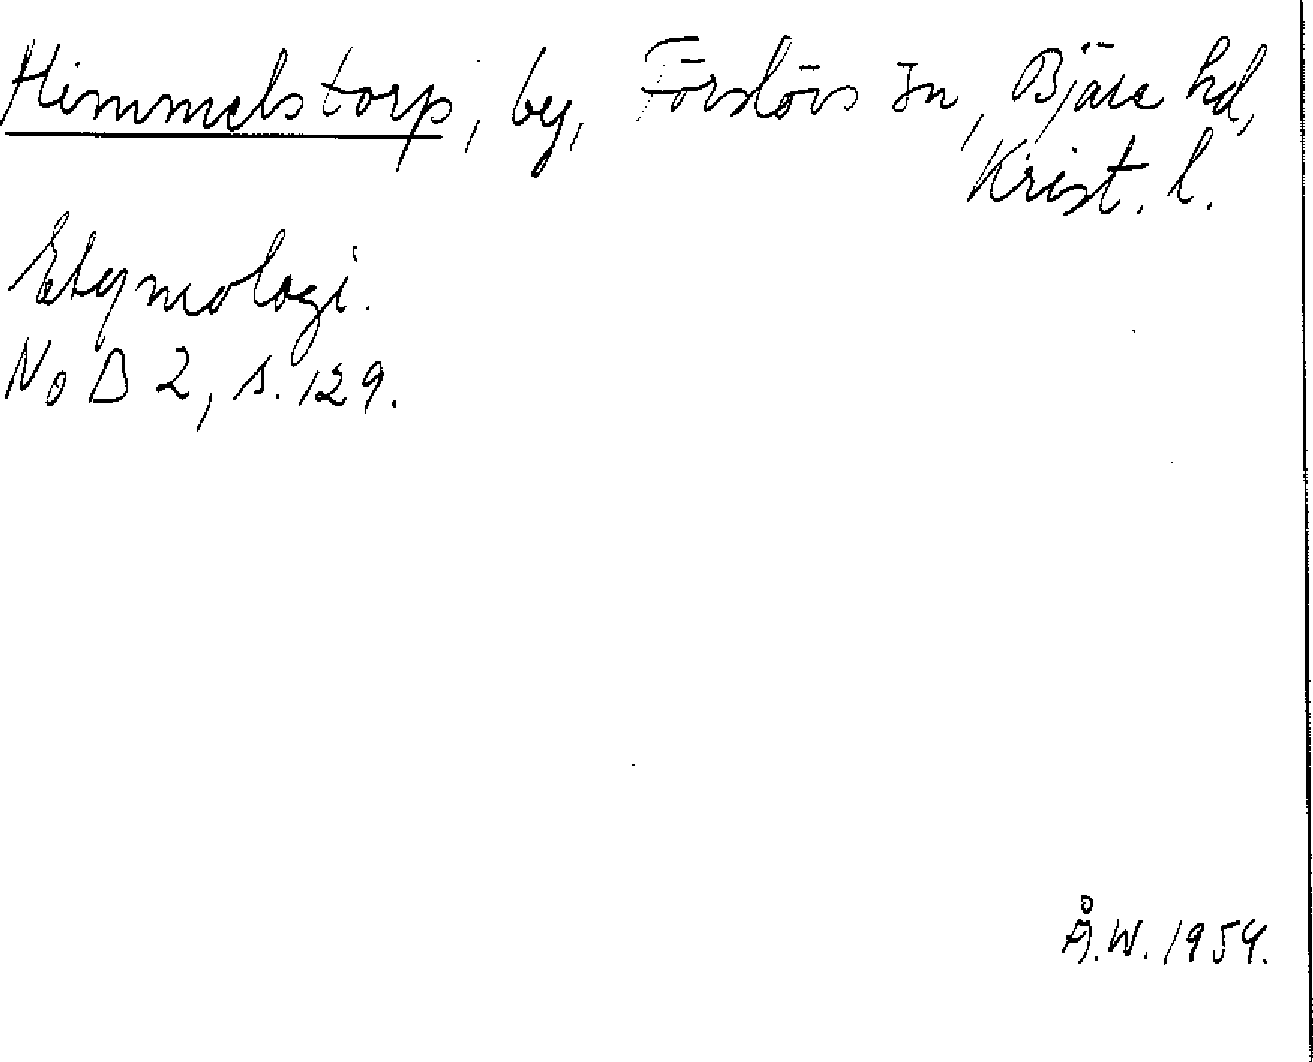 Himmelstorp, by, Förslövs sn, Bjäre hd,
Krist. l.
Etymologi.
NoB 2, s. 129.
Å.W. 1954.